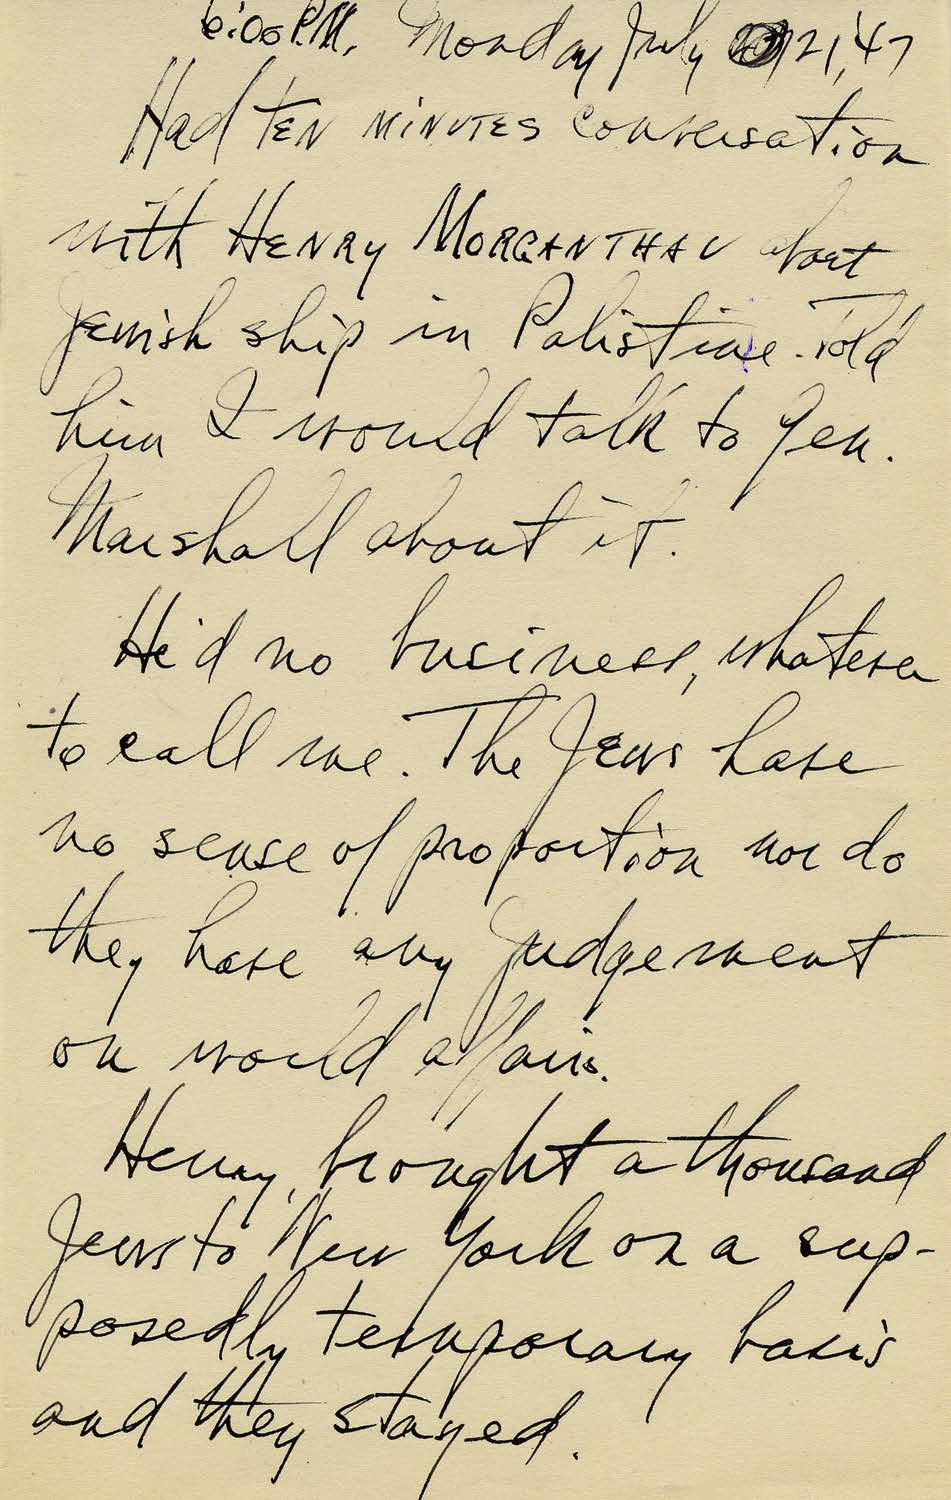 6:00 P.M. Monday July 21, '47
Had ten minutes conversation
with Henry Morganthau about
Jewish ship in Palistine. Told
him I would talk to Gen.
Marshall about it.
He'd no business, whatever
to call me. The Jews have
no sense of proportion nor do
they have any judgement
on world affairs.
Henry, brought a thousand
Jews to New York on a sup-
posedly temporary basis
and they stayed.